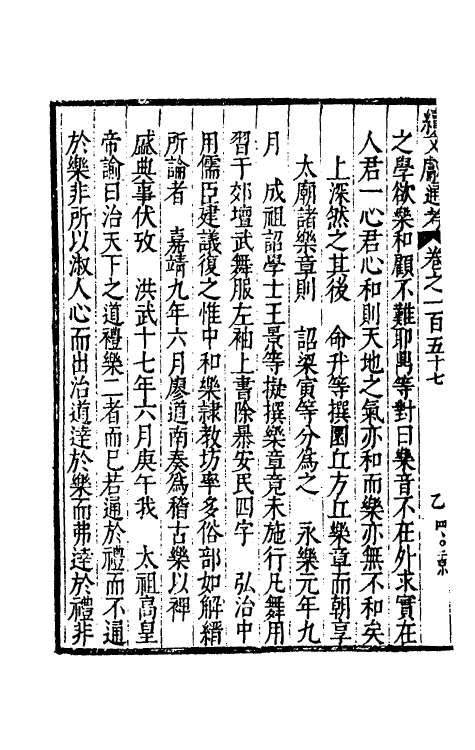 續文獻通考 卷之一百五十七 乙四〇京
之學欲樂和顧不難耶興等對曰樂音不在外求實在
人君一心君心和則天地之氣亦和而樂亦無不和矣
上深然之其後 命升等撰圜丘方丘樂章而朝享
太廟諸樂章則 詔梁寅等分為之 永樂元年九
月 成祖詔學士王景等擬撰樂章竟未施行凡舞用
習于郊壇武舞服左袖上書除暴安民四字 弘治中
用儒臣建議復之惟中和樂隸教坊率多俗部如解縉
所論者 嘉靖九年六月廖道南奏為稽古樂以裨
盛典事伏攷 洪武十七年六月庚午我 太祖高皇
帝諭曰治天下之道禮樂二者而已若通於禮而不通
於樂非所以淑人心而出治道達於樂而弗達於禮非